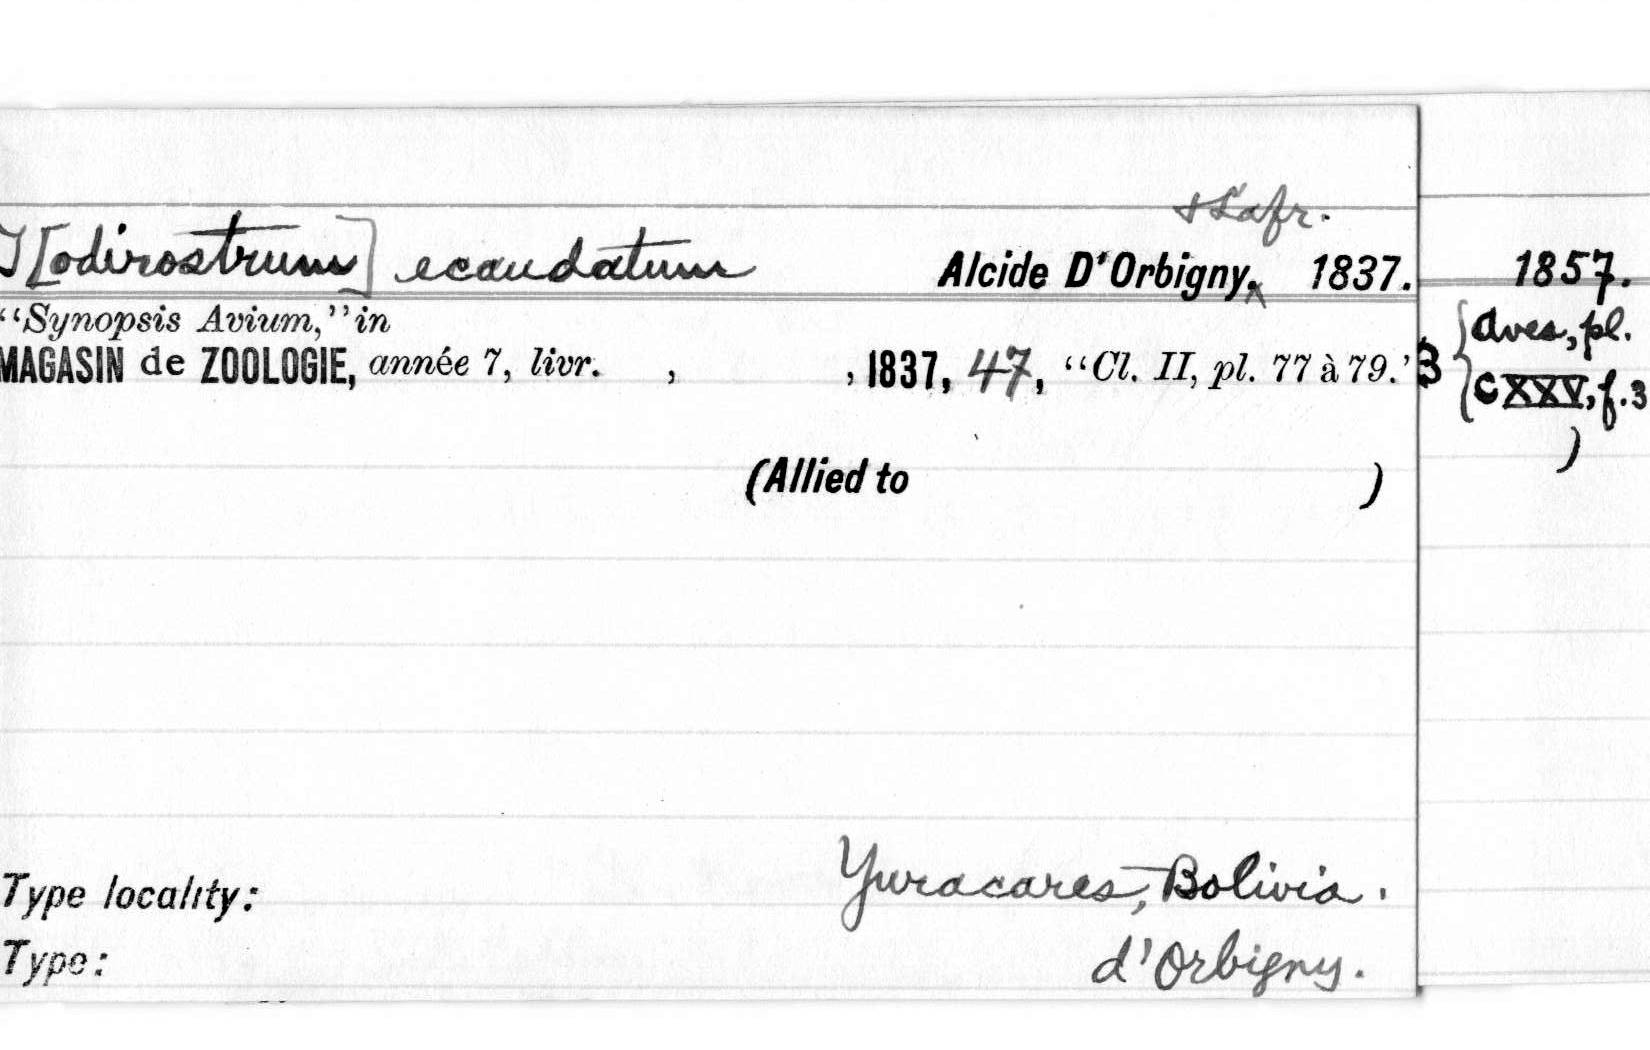 & Lafr.
T[odirostrum] ecaudatum Alcide D'Orbigny. 1837. 1857.
“Synopsis Avium,” in
MAGASIN de ZOOLOGIE, année 7, livr. , , 1837, 47, “Cl. II, pl. 77 à 79.’ 3 { Aves, pl.
CXXV, f. 3
(Allied to ) )
Type locality: Yuracares, Bolivia.
Type: d'Orbigny.